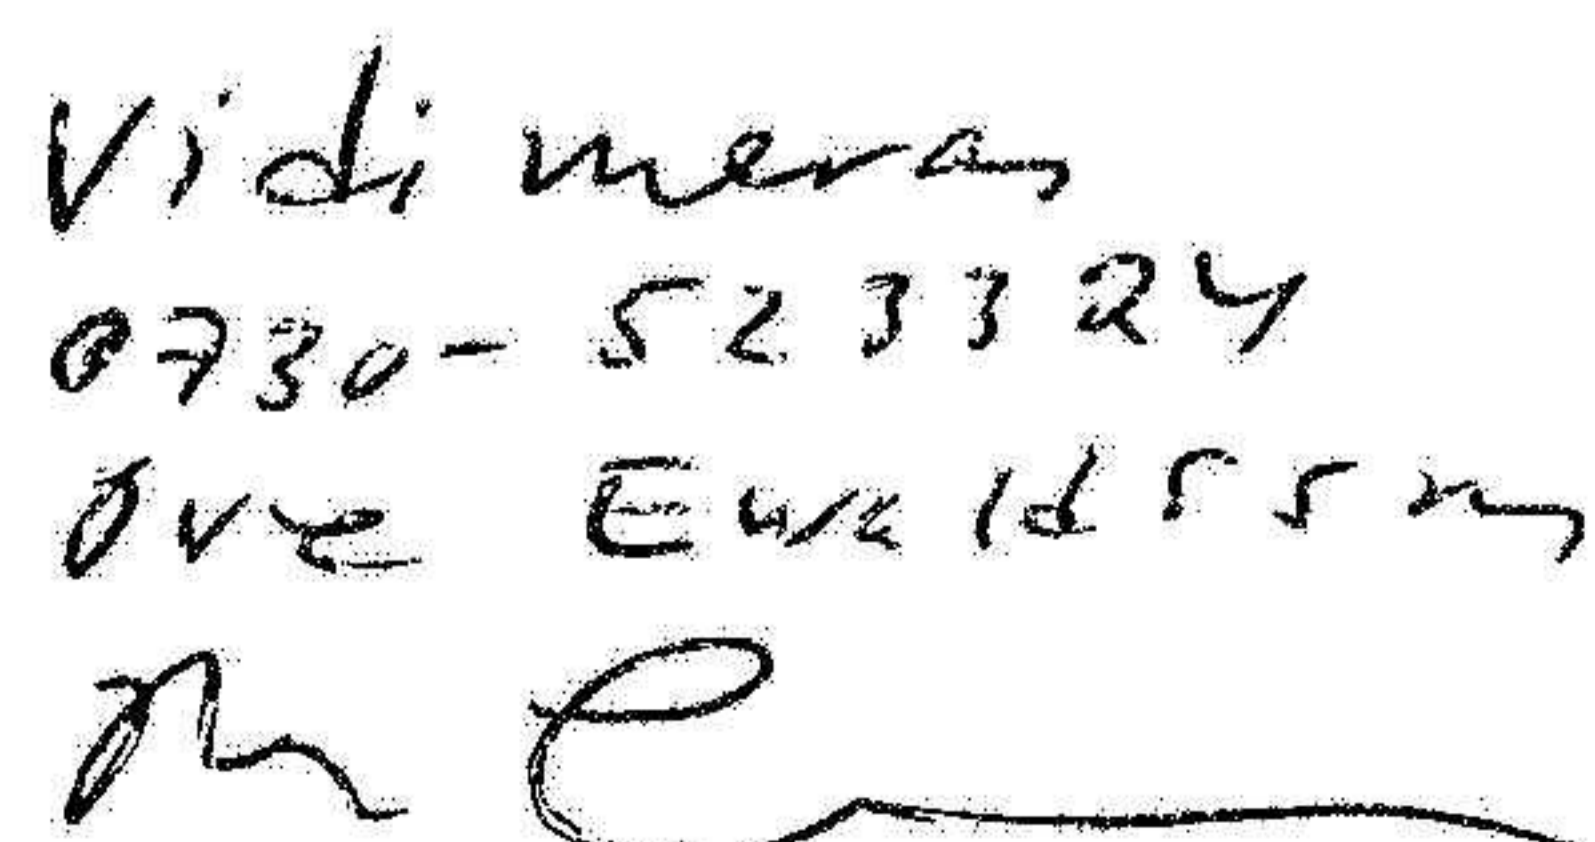 Vidimeras
0730-523324
Ove Ewaldsson